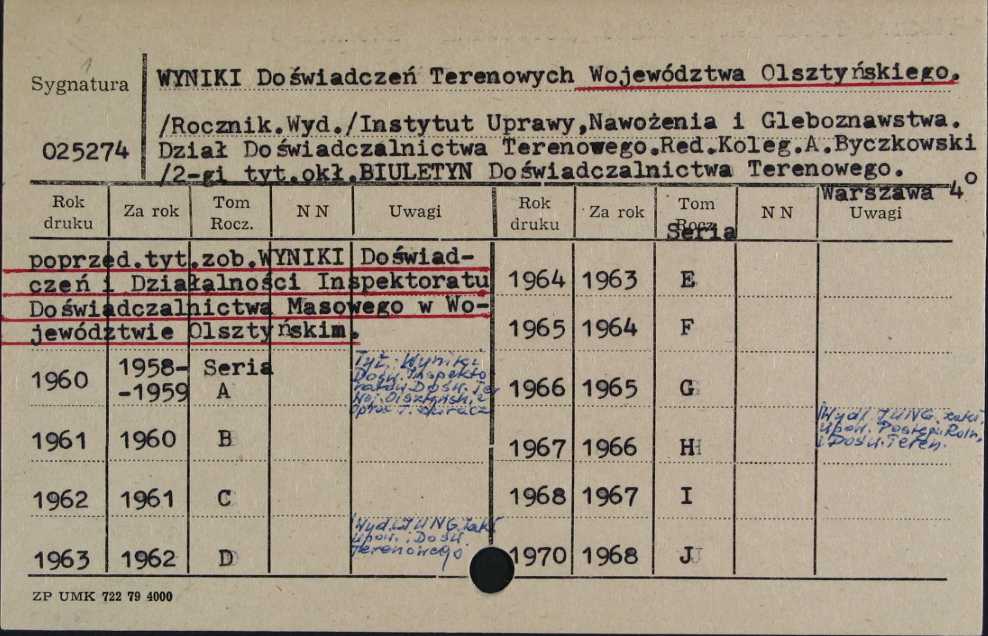 Sygnatura
025274
WYNIKI Doświadczeń Terenowych Województwa Olsztyńskiego.
/Rocznik.Wyd./Instytut Uprawy,Nawożenia i Gleboznawstwa.
Dział Doświadczalnictwa Terenowego.Red.Koleg.A.Byczkowski
/2-gi tyt.okł.BIULETYN Doświadczalnictwa Terenowego.
Warszawa 4°
Rok druku Za rok Tom Rocz. NN Uwagi Rok druku Za rok Tom Rocz. NN Uwagi
Seria
poprzed.tyt.zob.WYNIKI Doświad-
czeń i Działalności Inspektoratu
Doświadczalnictwa Masowego w Wo-
jewództwie Olsztyńskim.
1960 1958-1959 Seria A
Tyt. Wyniki
Dośw. Inspekto
ratów Dośw. Ter
Woj. Olsztyńsk.
1961 1960 B
1962 1961 C
1963 1962 D Wyd. IUNG. Zakł
Upow. i Dośw.
Terenowego
1964 1963 E
1965 1964 F
1966 1965 G
1967 1966 H Wyd. IUNG. Zakł.
Upow. Postępu Roln.
i Dośw. Teren.
1968 1967 I
1970 1968 J
ZP UMK 722 79 4000